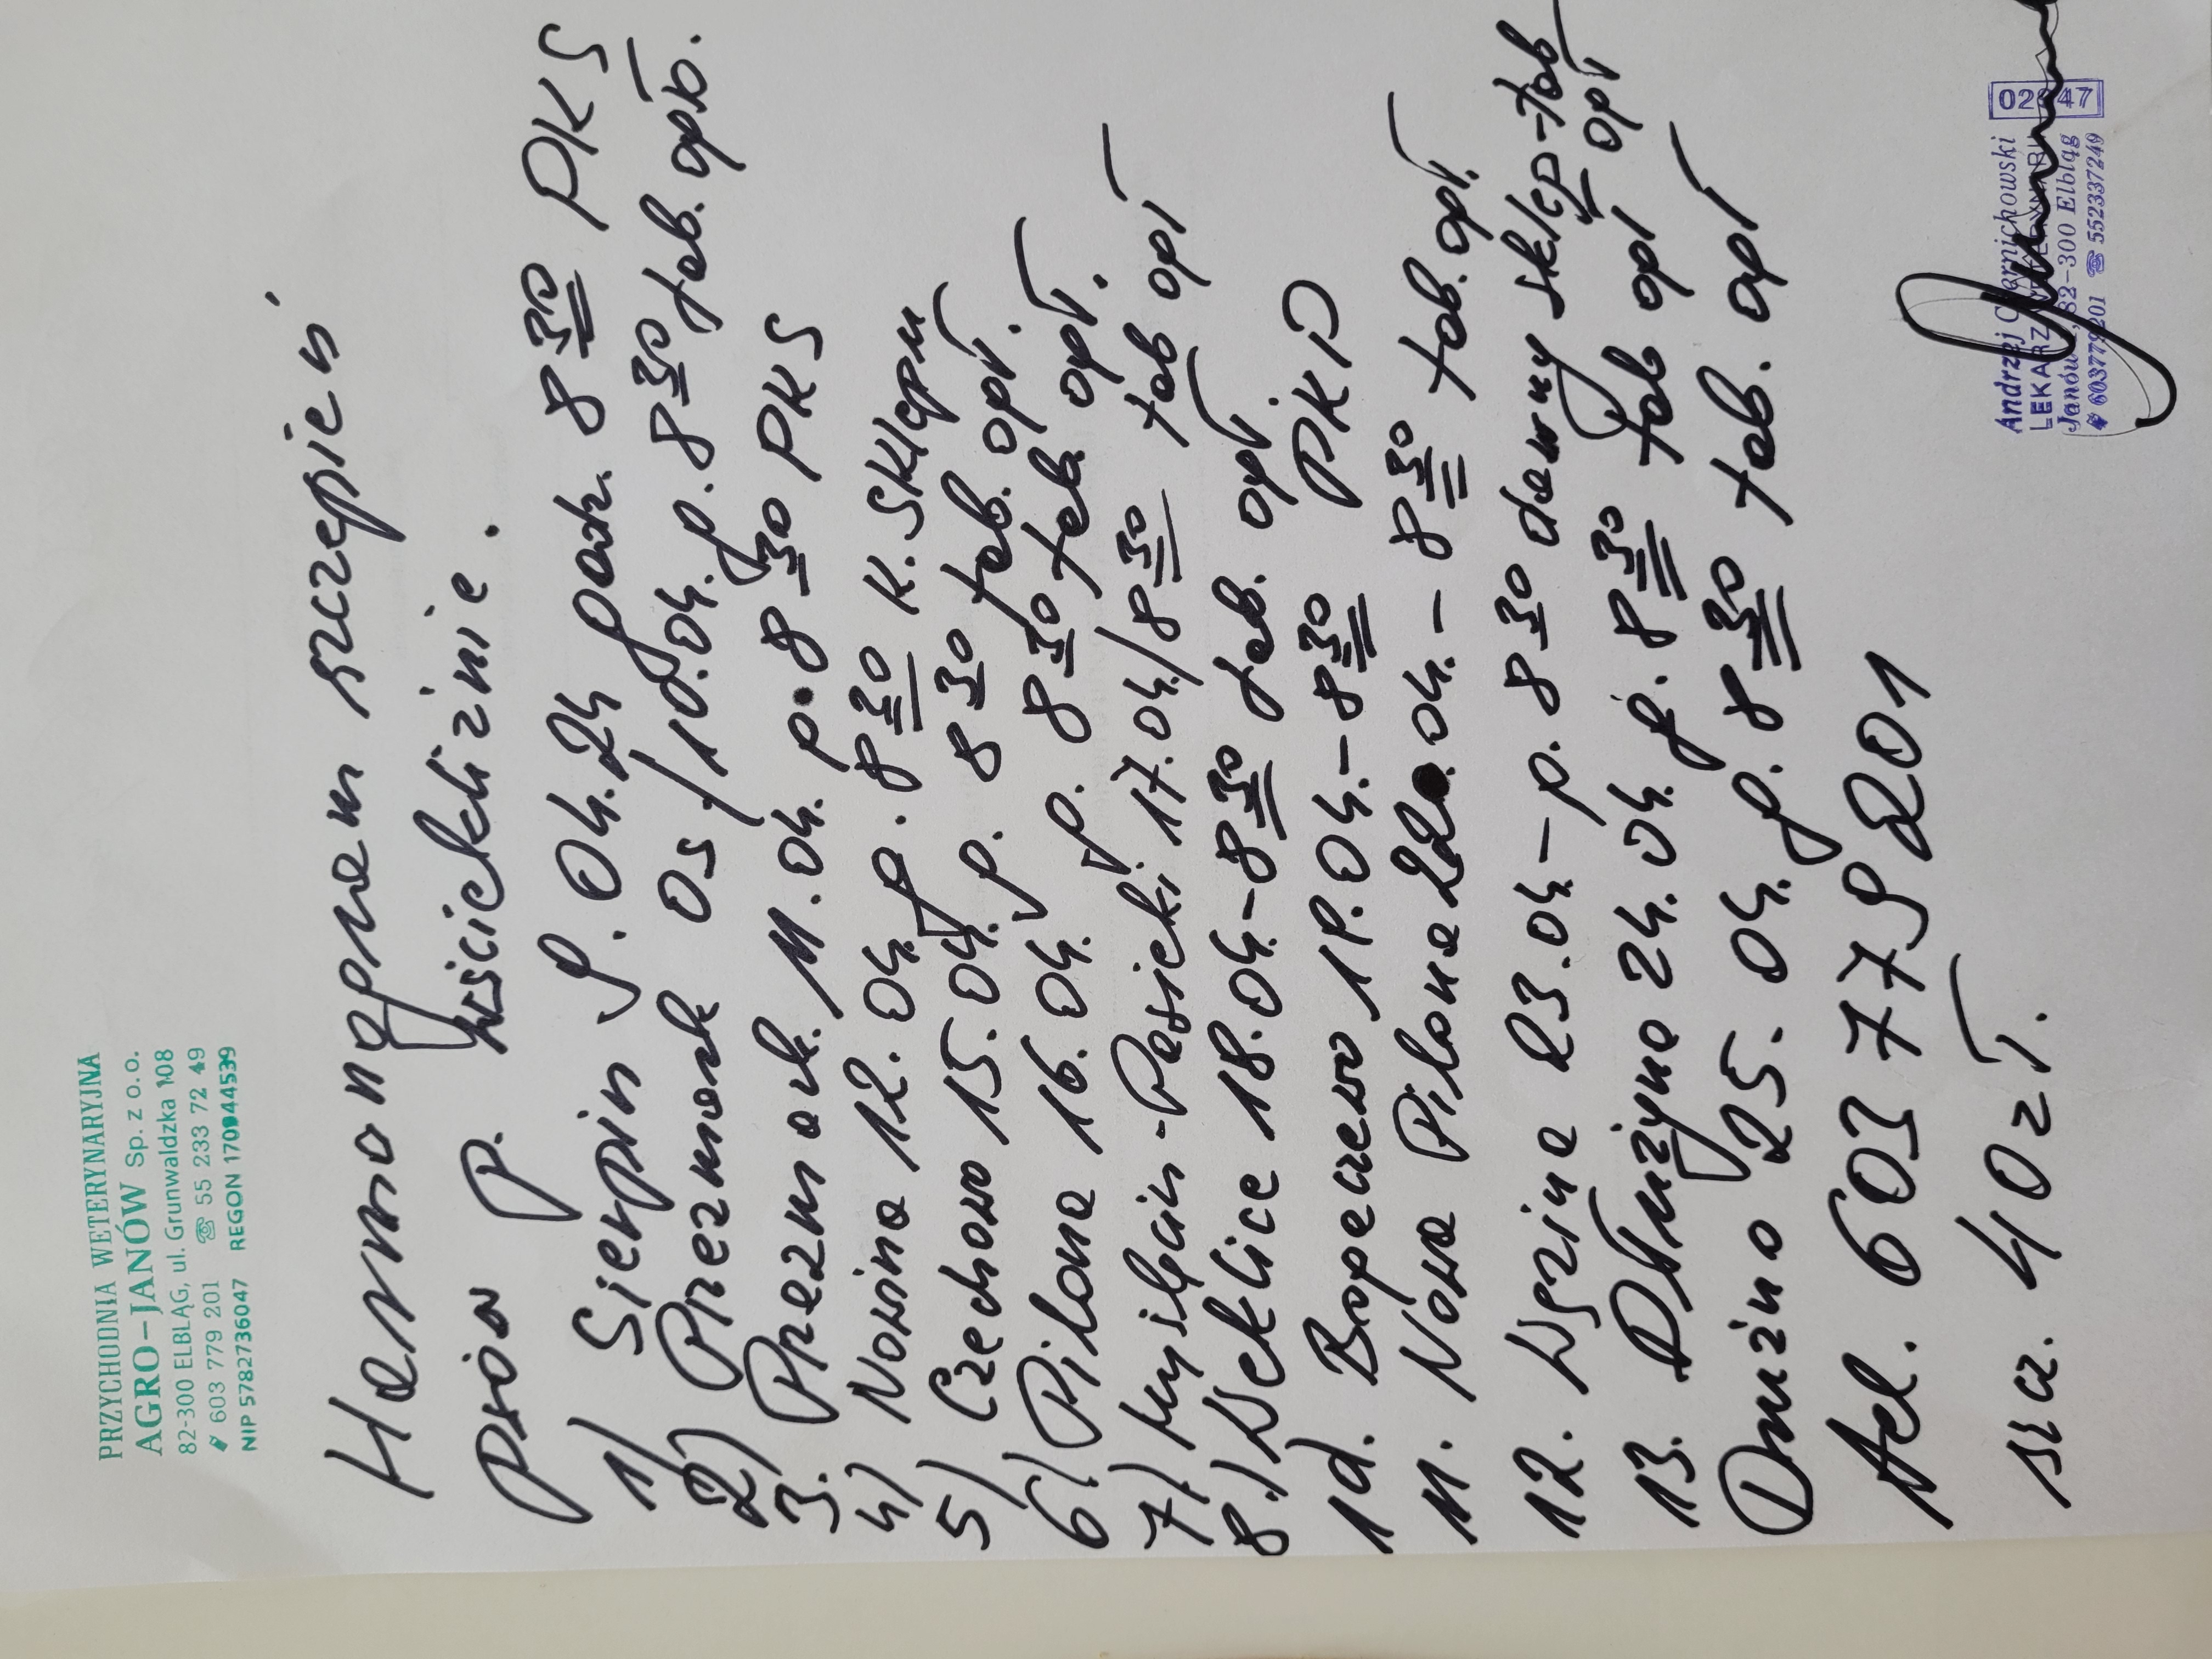 PRZYCHODNIA WETERYNARYJNA
AGRO-JANÓW Sp. z o.o.
82-300 ELBLĄG, ul. Grunwaldzka 108
603 779 201 ☏ 55 233 72 49
NIP 5782736047 REGON 170944539
Harmonogram szczepień
psów p. wściekliźnie.
1) Sierpin 9.04.24 godz. 8 30 PKS
2) Przezmark Os/10.04. g. 8 30 tab. opło.
3. Przezmark. 11.04. p. 8 30 PKS
4) Nowina 12.04. g. 8 30 k. sklepu
5) Czechowo 15.04. g. 8 30 tab. opł.
6.) Pilona 16.04. g. 8 30 tab. opł.
7.) Myślęcin-Pasieki 17.04/8 30 tab opł
8.) Weklice 18.04.-8 30 tab. opł.
10. Bogaczewo 19.04.-8 30 PKP
11. Nowa Pilona 22.04.- 8 30 tab. opł.
12. Węzina 23.04.- p. 8 30 dawny sklep-tab opł
13. Dłużyna 24.04. g. 8 30 tab opł
Drużno 25.04. g. 8 30 tab. opł
tel. 603 779 201
sz. 40 zł.
Andrzej Czarnichowski
LEKARZ WETERYNARII
Janów, 82-300 Elbląg
603779201 ☏ 552337249